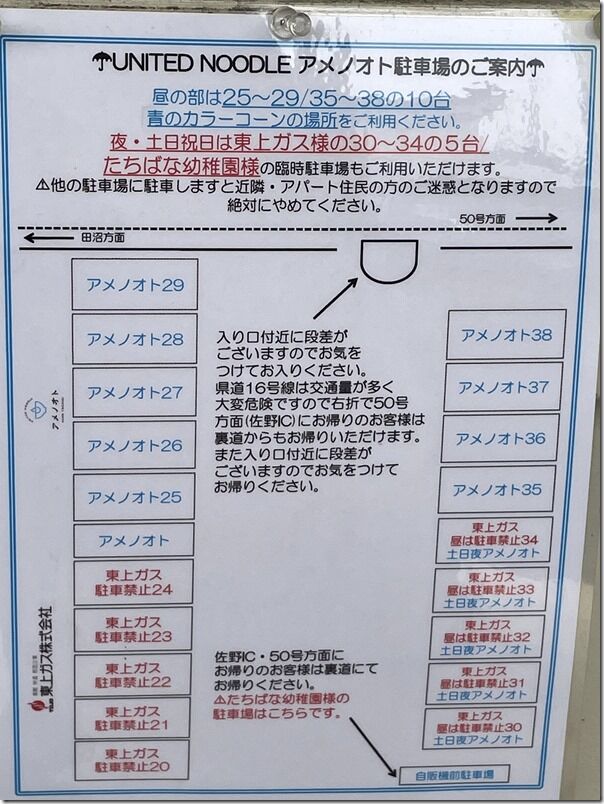 ☂UNITED NOODLE アメノオト駐車場のご案内☂
昼の部は25～29/35～38の10台
青のカラーコーンの場所をご利用ください。
夜・土日祝日は東上ガス様の30～34の5台/
たちばな幼稚園様の臨時駐車場もご利用いただけます。
⚠他の駐車場に駐車しますと近隣・アパート住民の方のご迷惑となりますので
絶対にやめてください。
50号方面
田沼方面
アメノオト29
アメノオト28
アメノオト27
アメノオト26
アメノオト25
アメノオト
東上ガス
駐車禁止24
東上ガス
駐車禁止23
東上ガス
駐車禁止22
東上ガス
駐車禁止21
東上ガス
駐車禁止20
アメノオト
東上ガス株式会社
入り口付近に段差が
ございますのでお気を
つけてお入りください。
県道16号線は交通量が多く
大変危険ですので右折で50号
方面(佐野IC)にお帰りのお客様は
裏道からもお帰りいただけます。
また入り口付近に段差が
ございますのでお気をつけて
お帰りください。
佐野IC・50号方面に
お帰りのお客様は裏道にて
お帰りください。
⚠たちばな幼稚園様の
駐車場はこちらです。
アメノオト38
アメノオト37
アメノオト36
アメノオト35
東上ガス
昼は駐車禁止34
土日夜アメノオト
東上ガス
昼は駐車禁止33
土日夜アメノオト
東上ガス
昼は駐車禁止32
土日夜アメノオト
東上ガス
昼は駐車禁止31
土日夜アメノオト
東上ガス
昼は駐車禁止30
土日夜アメノオト
自販機前駐車場